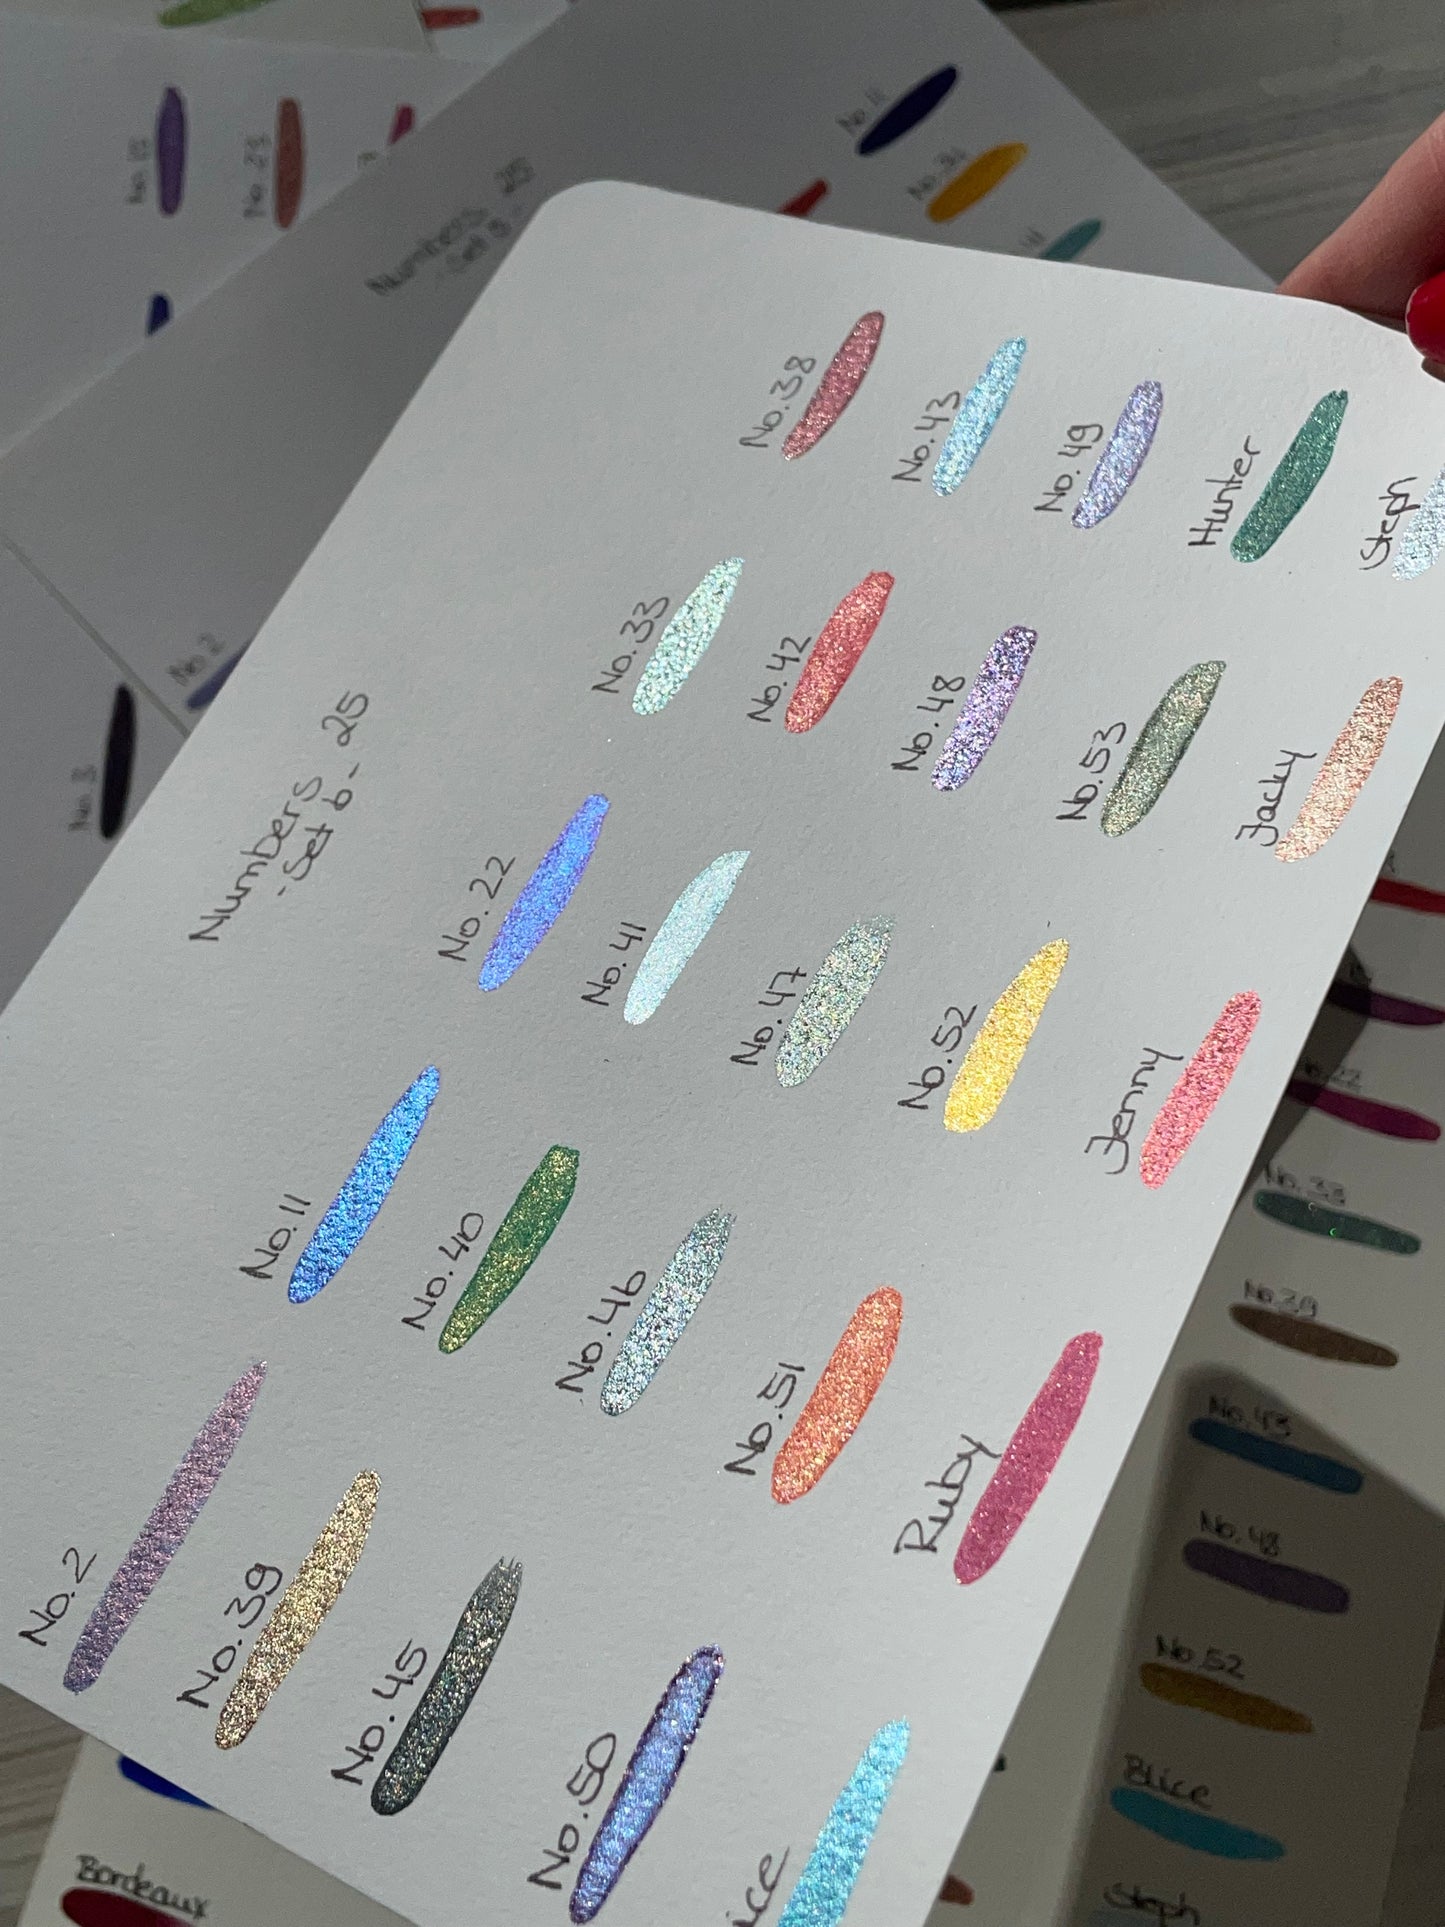 Numbers 25
-Set 6-
No.2
No.11
No.22
No.33
No.38
No.39
No.40
No.41
No.42
No.43
No.45
No.46
No.47
No.48
No.49
No.50
No.51
No.52
No.53
Hunter
Ruby
Jenny
Jacky
Steph
Numbers 25
No.11
No.2
No.3
No.33
No.39
No.43
No.48
No.52
Blice
Steph
Bordeaux